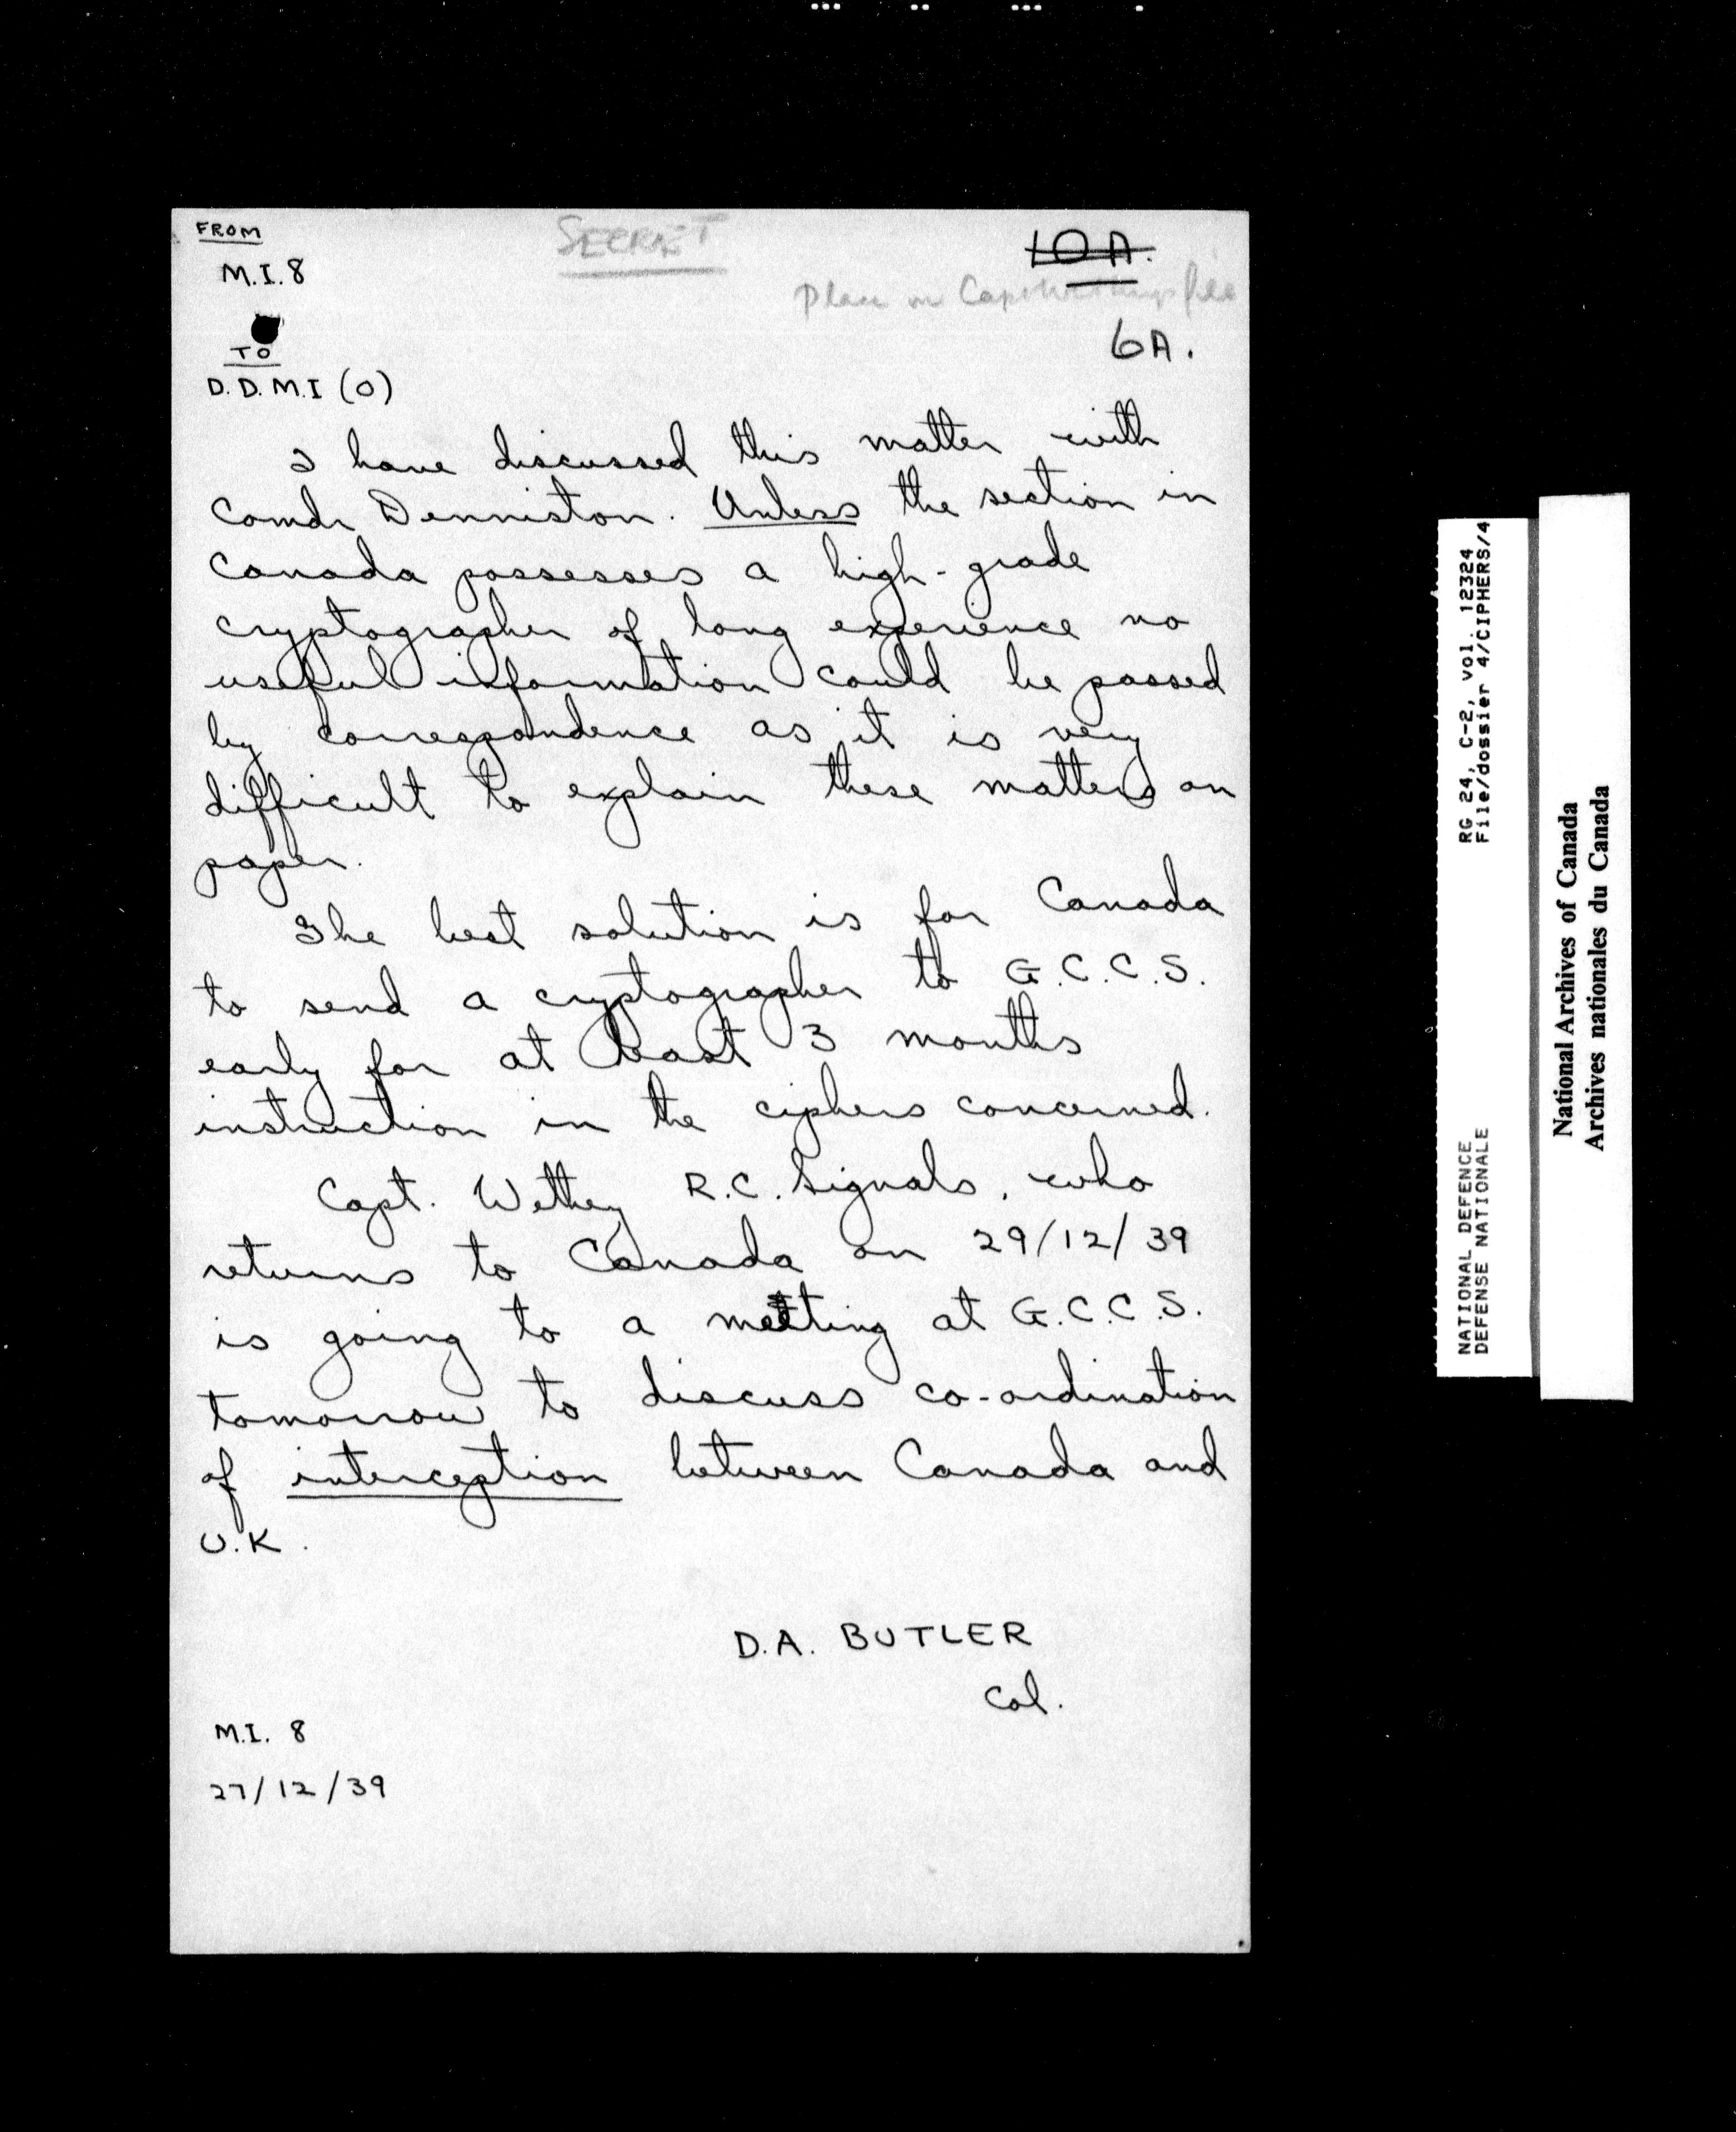 FROM
SECRET
10A.
M.I.8
Place on Capt file
TO
6A.
D.D.M.I (O)
I have discussed this matter with
Comdr Denniston. Unless the section in
Canada possesses a high-grade
cryptographer of long experience no
useful information could be passed
by correspondence as it is very
difficult to explain these matters on
paper.
The best solution is for Canada
to send a cryptographer to G.C.C.S.
early for at least 3 months
instruction in the ciphers concerned.
Capt. Wethey R.C. Signals, who
returns to Canada on 29/12/39
is going to a meeting at G.C.C.S.
tomorrow to discuss co-ordination
of interception between Canada and
U.K.
D.A. BUTLER
Col.
M.I. 8
27/12/39
NATIONAL DEFENCE RG 24, C-2, vol. 12324
DEFENSE NATIONALE File/dossier 4/CIPHERS/4
National Archives of Canada
Archives nationales du Canada